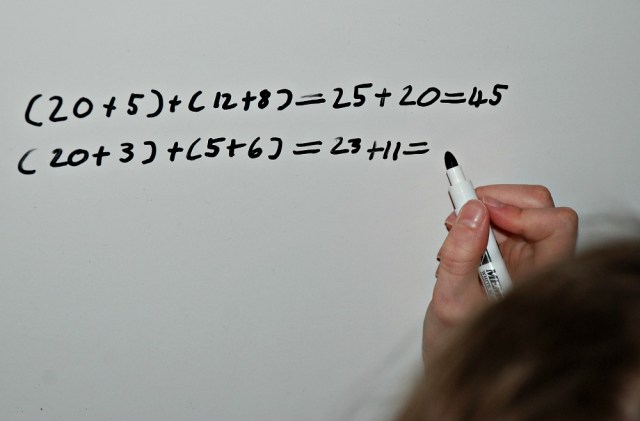 (20+5)+(12+8)=25+20=45
(20+3)+(5+6)=23+11=